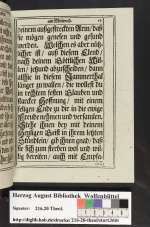 am Mitwoch.
deinem außgestreckten Arm / daß
sie mögen genesen und gesund
werden. Welchen es aber nütz-
licher ist / auß diesem Elend /
nach deinem Göttlichen Wil-
len / jetzund abzuscheiden / dann
allhie in diesem Jammerthal
länger zu wallen / die wollest du
in rechtem festen Glauben und
starcker Hoffnung / mit einem
seligen Ende zu dir in die ewige
Freude nehmen und versamlen.
Stehe ihnen bey mit deinem
Heyligen Geist in ihrem letzten
Stündlein / gib ihnen gnad / daß
sie sich zum sterben wol und wil-
lig bereiten / auch mit Empfa-
Herzog August Bibliothek Wolfenbüttel
Signatur: 216-20 Theol.
http://diglib.hab.de/drucke/216-20-theol/start.htm